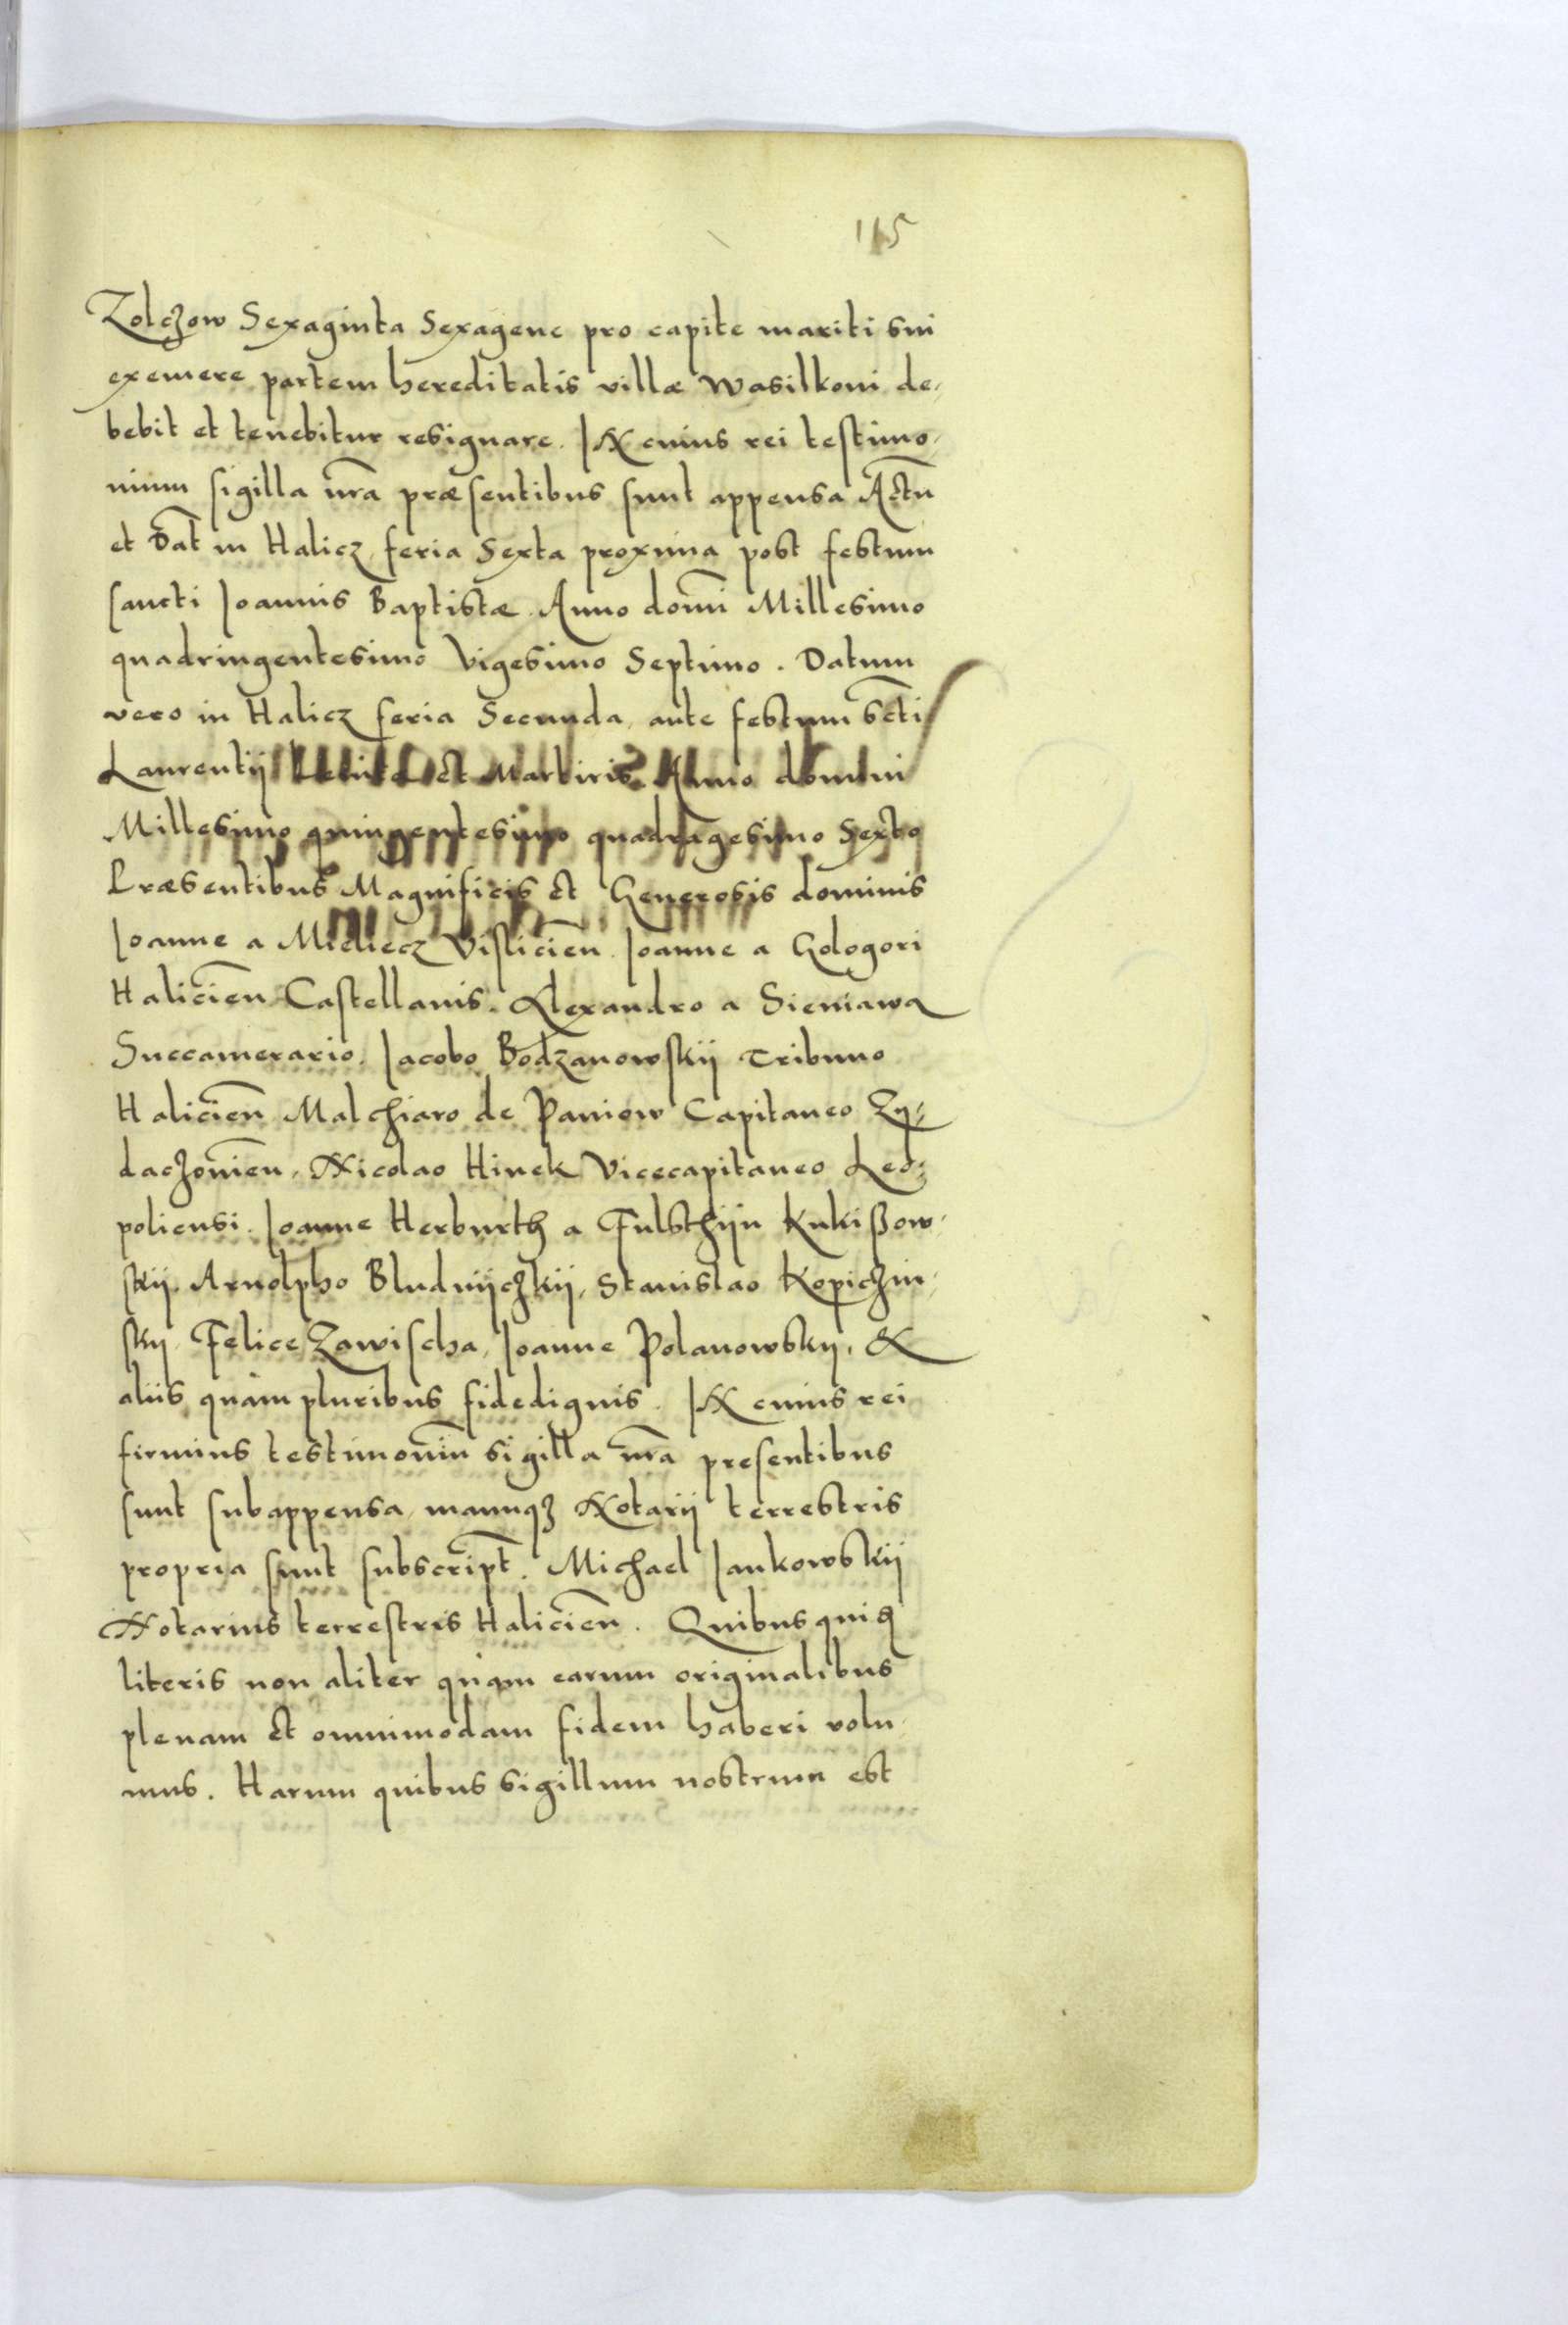 115
Zolczow Sexaginta Sexagene pro capite mariti sui
exemere partem hereditatis villæ Wasilkoni de-
bebit et tenebitur resignare. IN cuius rei testimo-
nium sigilla nr̃a præsentibus sunt appensa Actũ
et Dat̃ in Halicz feria Sexta proxima post festum
sancti Joannis Baptistæ Anno domĩ Millesimo
quadringentesimo Vigesimo Septimo. Datum
vero in Halicz feria Secunda ante festum sc̃ti
Laurentii et Martiris Anno domini
Millesimo quingentesimo quadragesimo Sexto
Præsentibus Magnificis et Generosis dominis
Joanne a Mieliecz Visliciẽn. Joanne a Gologori
Haliciẽn Castellanis. Alexandro a Sieniawa
Succamerario. Jacobo Bodzanowskij Tribuno
Haliciẽn Malchiaro de Paniow Capitaneo Zy-
daczoniẽn, Nicolao Hinek Vicecapitaneo Leo-
poliensi. Joanne Herburth a Fulsthijn Kukißow-
skij, Arnolpho Bludnijczkij, Stanislao Kopiczin-
skij, Felice Zawischa, Joanne Polanowskij, &
aliis quàm pluribus fidedignis. IN cuius rei
firmius testimoniũ sigilla nr̃a presentibus
sunt subappensa, manuqꝫ Notarij terrestris
propria sunt subscript̃. Michael Jankowskij
Notarius terrestris Haliciẽn. Quibus quidẽ
literis non aliter quàm earum originalibus
plenam et omnimodam fidem haberi volu-
mus. Harum quibus sigillum nostrum est